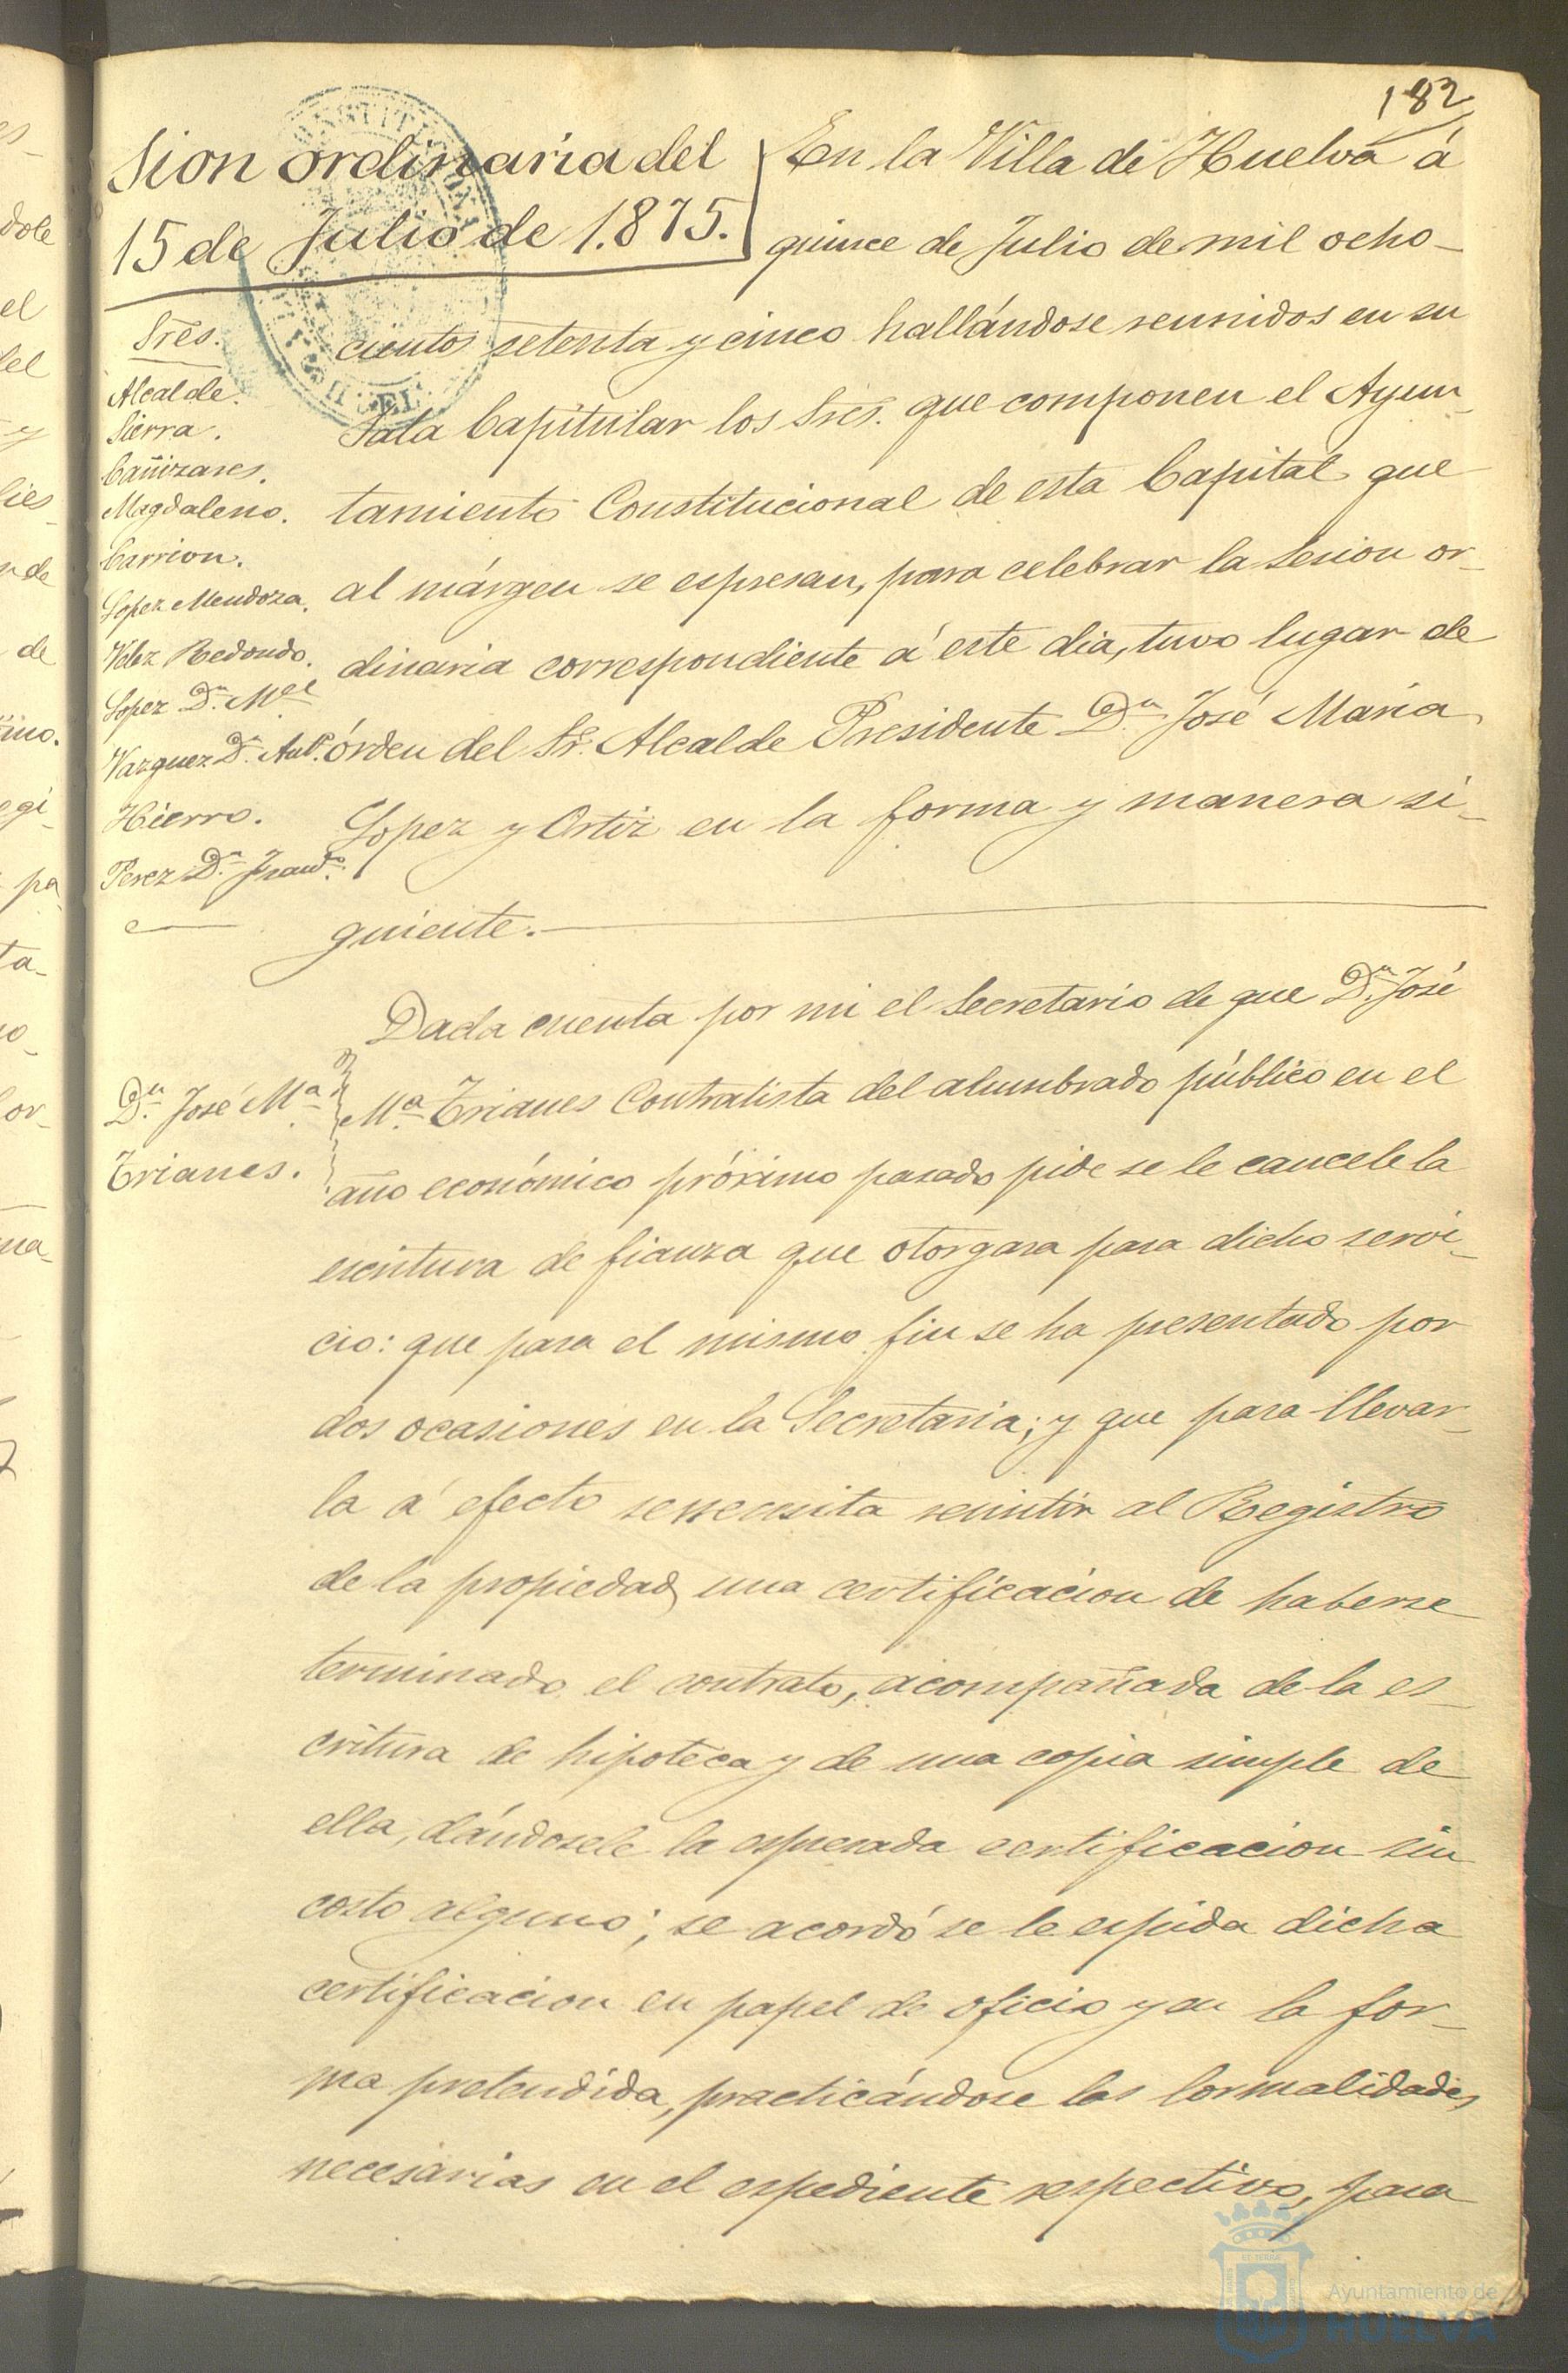 182
Sion ordinaria del
15 de Julio de 1.875.
Sres.
Alcalde.
Sierra.
Cañizares.
Magdaleno.
Carrion.
Lopez Mendoza.
Velez Redondo.
Lopez Dn. Mel
Vazquez Dn. Anto.
Hierro.
Perez Dn. Frando.
En la Villa de Huelva á
quince de Julio de mil ocho-
cientos setenta y cinco hallándose reunidos en su
Sala Capitular los Sres. que componen el Ayun-
tamiento Constitucional de esta Capital que
al márgen se espresan, para celebrar la Sesion or-
dinaria correspondiente á este dia, tuvo lugar de
órden del Sr. Alcalde Presidente Dn. José Maria
Lopez y Ortiz en la forma y manera si-
guiente.
Dn. José Ma.
Trianes.
Dada cuenta por mi el Secretario de que Dn. José
Ma. Trianes Contratista del alumbrado público en el
año económico próximo pasado pide se le cancele la
escritura de fianza que otorgara para dicho servi-
cio: que para el mismo fin se ha presentado por
dos ocasiones en la Secretaria; y que para llevar-
la á efecto se necesita remitir al Registro
de la propiedad una certificacion de haberse
terminado el contrato, acompañada de la es-
critura de hipoteca y de una copia simple de
ella, dándosele la espresada certificacion sin
costo alguno; se acordó se le espida dicha
certificacion en papel de oficio y en la for-
ma pretendida, practicándose las formalidades
necesarias en el espediente respectivo, para
Ayuntamiento de
HUELVA